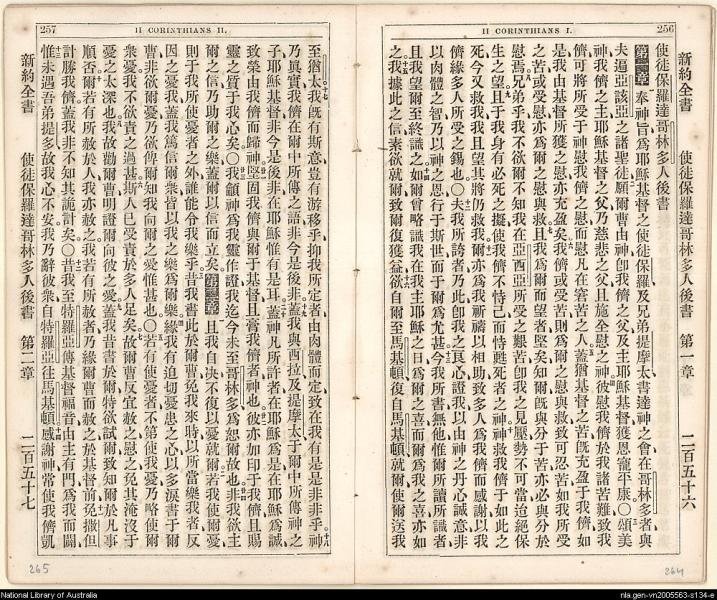 256
II CORINTHIANS I.
新約全書 使徒保羅達哥林多人後書 第一章 二百五十六
使徒保羅達哥林多人後書
第一章 奉神旨爲耶穌基督之使徒保羅及兄弟提摩太書達神之會在哥林多者與
夫遍亞該亞之諸聖徒願爾曹由神卽我儕之父及主耶穌基督獲恩寵平康〇頌美
神我儕之主耶穌基督之父乃慈悲之父且施全慰之神彼慰我儕於我諸苦難致我
儕可將所受于神慰我儕之慰而慰凡在窘苦之人蓋猶基督之苦旣充盈于我儕如
是我由基督所獲之慰亦充盈矣我儕或受苦則爲爾之慰與救致可忍苦如我所受
之苦或受慰亦爲爾之慰與救且我爲爾而望者堅矣知爾旣與分于苦亦必與分於
慰焉兄弟乎我不欲爾不知我在亞西亞所受之艱苦卽我之見壓勢不可當迨絕保
生之望且于我身有必死之擬使我儕不恃己而恃甦死者之神神救我儕于如此之
死今又救我我且望其將仍救我爾亦爲我祈禱以相助致多人爲我儕而感謝以我
儕緣多人所受之錫也〇夫我所誇者乃此卽我之良心證我以由神之丹心誠意非
以肉體之智乃以神之恩行于斯世而于爾爲尤甚今我所書無他惟爾所讀所識者
且我望爾至終識之如爾會略識我在我主耶穌之日爲爾之喜而爾爲我之喜亦如
之我據此之信素欲就爾致爾復獲益欲自爾至馬基頓復自馬基頓就爾使爾送我
264
257
II CORINTHIANS II.
至猶太我旣有斯意豈有游移乎抑我所定者由肉體而定致在我有是是非非乎神
乃眞實我儕在爾中所傳之語非今是後非蓋我與西拉及提摩太于爾中所傳神之
子耶穌基督非今是後非在耶穌惟有是耳蓋神凡所許者在耶穌爲是在耶穌爲誠
致榮由我儕而歸神堅固我儕與爾于基督且膏我儕者神也彼亦如印于我儕且賜
靈之質于我心矣〇我籲神爲我靈作證我迄今未至哥林多爲恕爾故也非我欲主
爾之信乃助爾之樂蓋爾以信而立矣第二章 且我自决不復以憂就爾若我使爾憂
則于我所使憂者之外誰能令我樂乎昔我書此於爾曹免我來時以所當樂我者反
因之憂我蓋我篤信爾衆皆以我之樂爲爾樂緣我有迫切憂患之心以多淚書于爾
曹非欲爾憂乃欲俾爾知我向爾之愛惟甚也〇若有使憂者不第使我憂乃略使爾
衆憂我不欲責之過甚斯人已受責於多人足矣故爾曹反宜赦之慰之免其淹沒于
憂之太深也我故勸爾曹明證爾向彼之愛蓋我昔書於爾特欲試爾致知爾於凡事
順否爾若有所赦於人我亦赦之我若有所赦者乃緣爾曹而赦之於基督前免撒但
計勝我儕蓋我非不知其詭計矣〇昔我至特羅亞傳基督福音由主有門爲我而闢
惟未遇吾弟提多故我心不安我乃辭彼衆自特羅亞往馬基頓感謝神常使我儕凱
新約全書 使徒保羅達哥林多人後書 第二章 二百五十七
265
National Library of Australia
nla.gen-vn2005563-s134-e